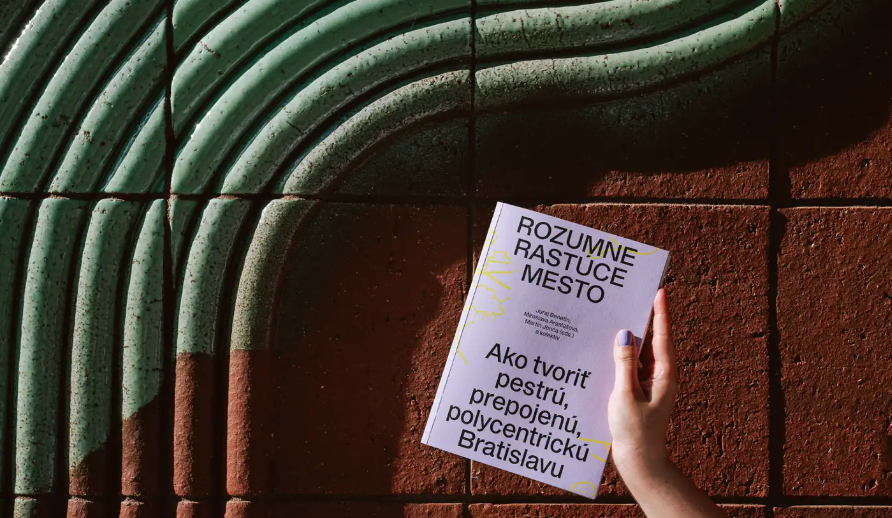 ROZUMNE
RASTÚCE
MESTO
Juraj Benetin,
Martin Jenča (eds.)
a kolektív
Ako tvoriť
pestrú,
prepojenú,
polycentrickú
Bratislavu